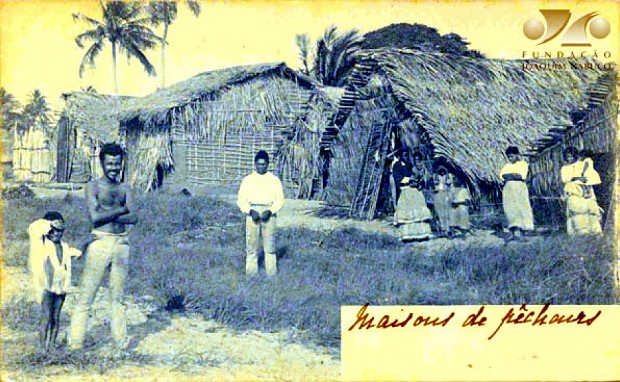 FUNDAÇÃO
JOAQUIM NABUCO
Maisons de pêcheurs